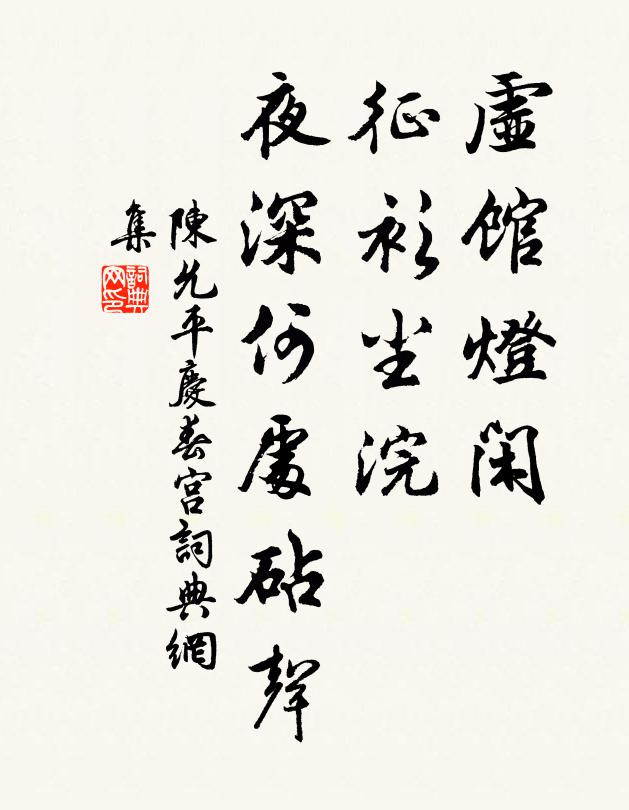 虛館燈閑
征衫尘浣
夜深何處砧聲
陳允平慶春宮詞典網
集
詞典网印